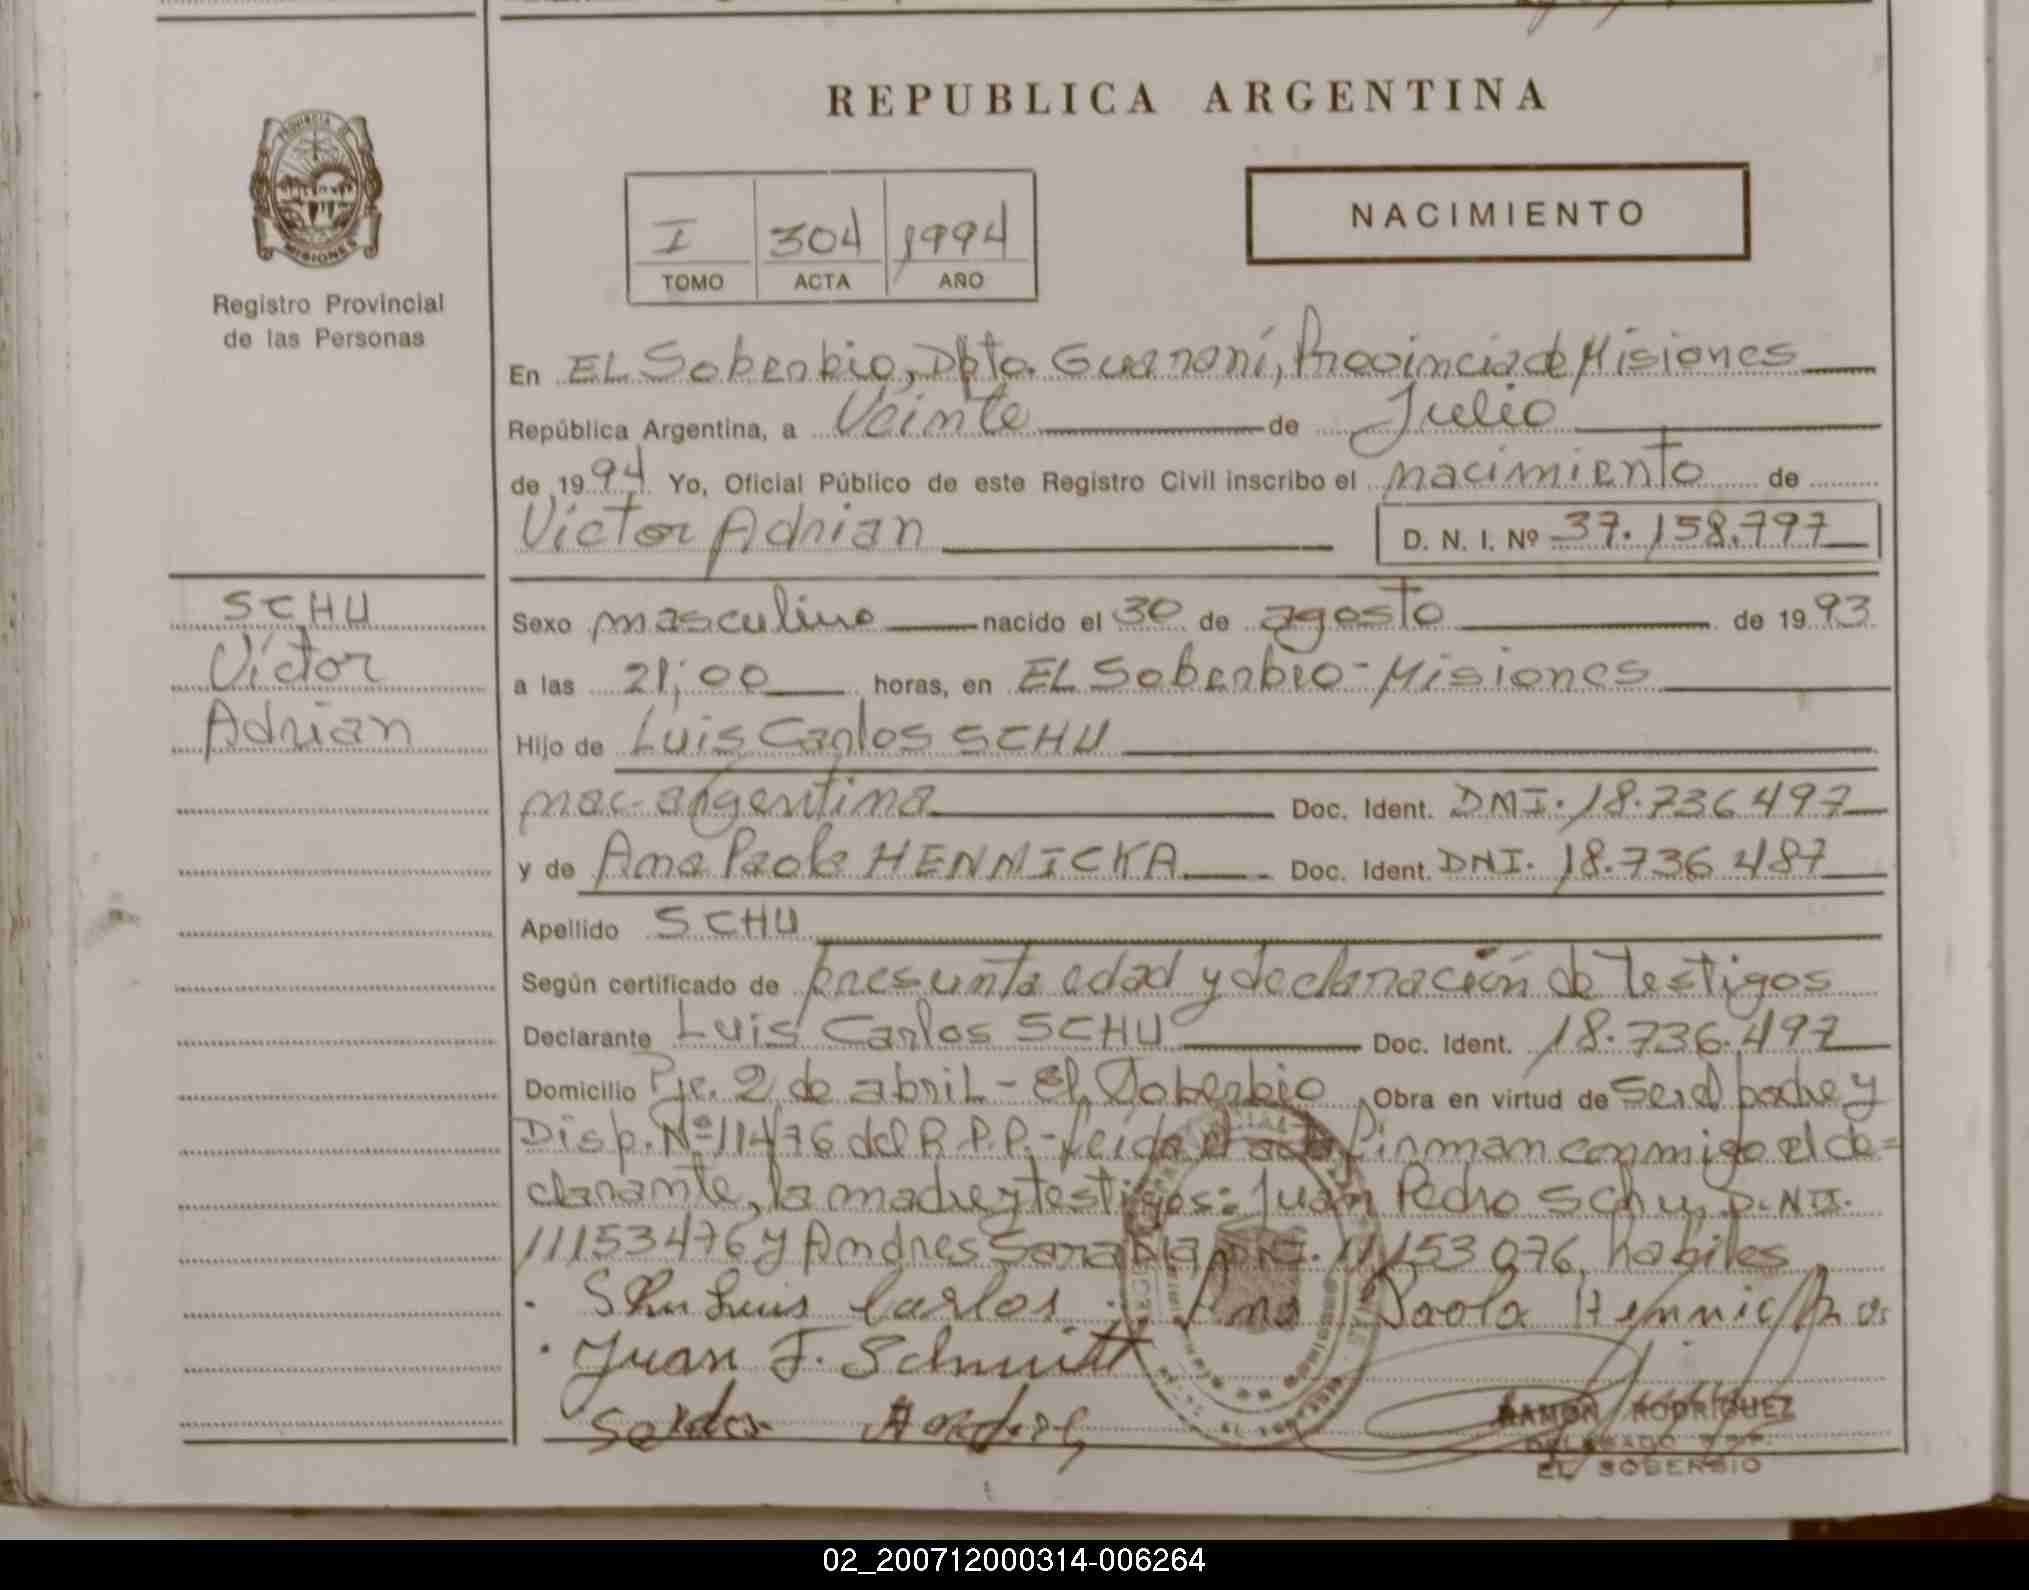 REPUBLICA ARGENTINA
PROVINCIA DE
MISIONES
Registro Provincial
de las Personas
I 304 1994
TOMO ACTA AÑO
NACIMIENTO
En EL Soberbio, Dpto. Guaraní, Provincia de Misiones
República Argentina, a Veinte de Julio
de 1994 Yo, Oficial Público de este Registro Civil inscribo el nacimiento de
Victor Adrian D. N. I. Nº 37.158.797
SCHU
Victor
Adrian
Sexo masculino nacido el 30 de agosto de 1993
a las 21,00 horas, en EL Soberbio - Misiones
Hijo de Luis Carlos SCHU
nac. argentina Doc. Ident. DNI. 18.736497
y de Ana Paola HENNICKA Doc. Ident. DNI. 18.736 487
Apellido SCHU
Según certificado de presunta edad y declaración de testigos
Declarante Luis Carlos SCHU Doc. Ident. 18.736.497
Domicilio Pje. 2 de abril - El Soberbio Obra en virtud de ser el padre y
Disp. Nº 11476 del R.P.P.- Leída el acta firman conmigo el de=
clarante, la madre y testigos: Juan Pedro Schu, D.NI.
11153476 y Andres 11.153 076, habiles
Schu Luis Carlos Ana Paola
Juan F. Schmitt
RAMON RODRIGUEZ
DELEGADO
EL SOBERBIO
02_200712000314-006264